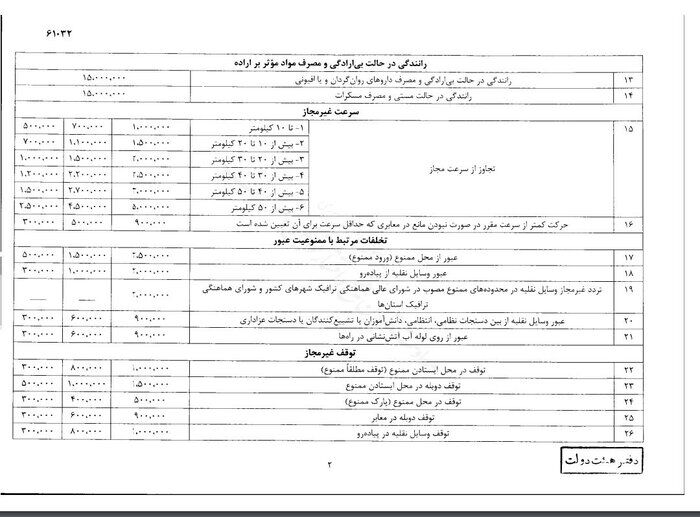 ۶۱۰۳۲
رانندگی در حالت بی‌ارادگی و مصرف مواد مؤثر بر اراده
۱۳ رانندگی در حالت بی‌ارادگی و مصرف داروهای روان‌گردان و یا افیونی ۱۵.۰۰۰.۰۰۰
۱۴ رانندگی در حالت مستی و مصرف مسکرات ۱۵.۰۰۰.۰۰۰
سرعت غیرمجاز
۱۵ تجاوز از سرعت مجاز
۱- تا ۱۰ کیلومتر ۱.۰۰۰.۰۰۰ ۷۰۰.۰۰۰ ۵۰۰.۰۰۰
۲- بیش از ۱۰ تا ۲۰ کیلومتر ۱.۱۰۰.۰۰۰ ۷۰۰.۰۰۰
۳- بیش از ۲۰ تا ۳۰ کیلومتر ۱.۵۰۰.۰۰۰ ۱.۰۰۰.۰۰۰
۴- بیش از ۳۰ تا ۴۰ کیلومتر ۲.۲۰۰.۰۰۰ ۱.۲۰۰.۰۰۰
۵- بیش از ۴۰ تا ۵۰ کیلومتر ۲.۷۰۰.۰۰۰ ۱.۵۰۰.۰۰۰
۶- بیش از ۵۰ کیلومتر ۵.۰۰۰.۰۰۰ ۴.۵۰۰.۰۰۰ ۲.۵۰۰.۰۰۰
۱۶ حرکت کمتر از سرعت مقرر در صورت نبودن مانع در معابری که حداقل سرعت برای آن تعیین شده است ۹۰۰.۰۰۰ ۵۰۰.۰۰۰ ۳۰۰.۰۰۰
تخلفات مرتبط با ممنوعیت عبور
۱۷ عبور از محل ممنوع (ورود ممنوع) ۱.۵۰۰.۰۰۰ ۵۰۰.۰۰۰
۱۸ عبور وسایل نقلیه از پیاده‌رو ۱.۰۰۰.۰۰۰ ۳۰۰.۰۰۰
۱۹ تردد غیرمجاز وسایل نقلیه در محدوده‌های ممنوع مصوب در شورای عالی هماهنگی ترافیک شهرهای کشور و شورای هماهنگی
ترافیک استان‌ها
۲۰ عبور وسایل نقلیه از بین دستجات نظامی، انتظامی، دانش‌آموزان یا تشییع‌کنندگان یا دستجات عزاداری ۹۰۰.۰۰۰ ۶۰۰.۰۰۰ ۳۰۰.۰۰۰
۲۱ عبور از روی لوله آب آتش‌نشانی در راه‌ها ۹۰۰.۰۰۰ ۶۰۰.۰۰۰ ۳۰۰.۰۰۰
توقف غیرمجاز
۲۲ توقف در محل ایستادن ممنوع (توقف مطلقاً ممنوع) ۸۰۰.۰۰۰ ۳۰۰.۰۰۰
۲۳ توقف دوبله در محل ایستادن ممنوع ۱.۰۰۰.۰۰۰ ۵۰۰.۰۰۰
۲۴ توقف در محل ممنوع (پارک ممنوع) ۵۰۰.۰۰۰ ۴۰۰.۰۰۰ ۳۰۰.۰۰۰
۲۵ توقف دوبله در معابر ۹۰۰.۰۰۰ ۶۰۰.۰۰۰ ۳۰۰.۰۰۰
۲۶ توقف وسایل نقلیه در پیاده‌رو ۸۰۰.۰۰۰ ۳۰۰.۰۰۰
۲
دفتر هیئت دولت